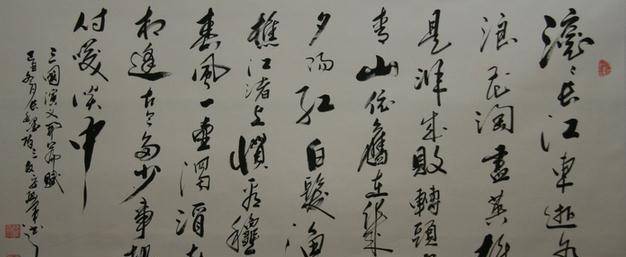 滚滚长江東逝水
浪花淘盡英雄
是非成敗轉頭
青山依舊在幾
夕陽红白髮漁
樵江渚上慣看穐
春風一壶濁酒
相逢古今多少事都
付笑談中
三國演义開篇賦